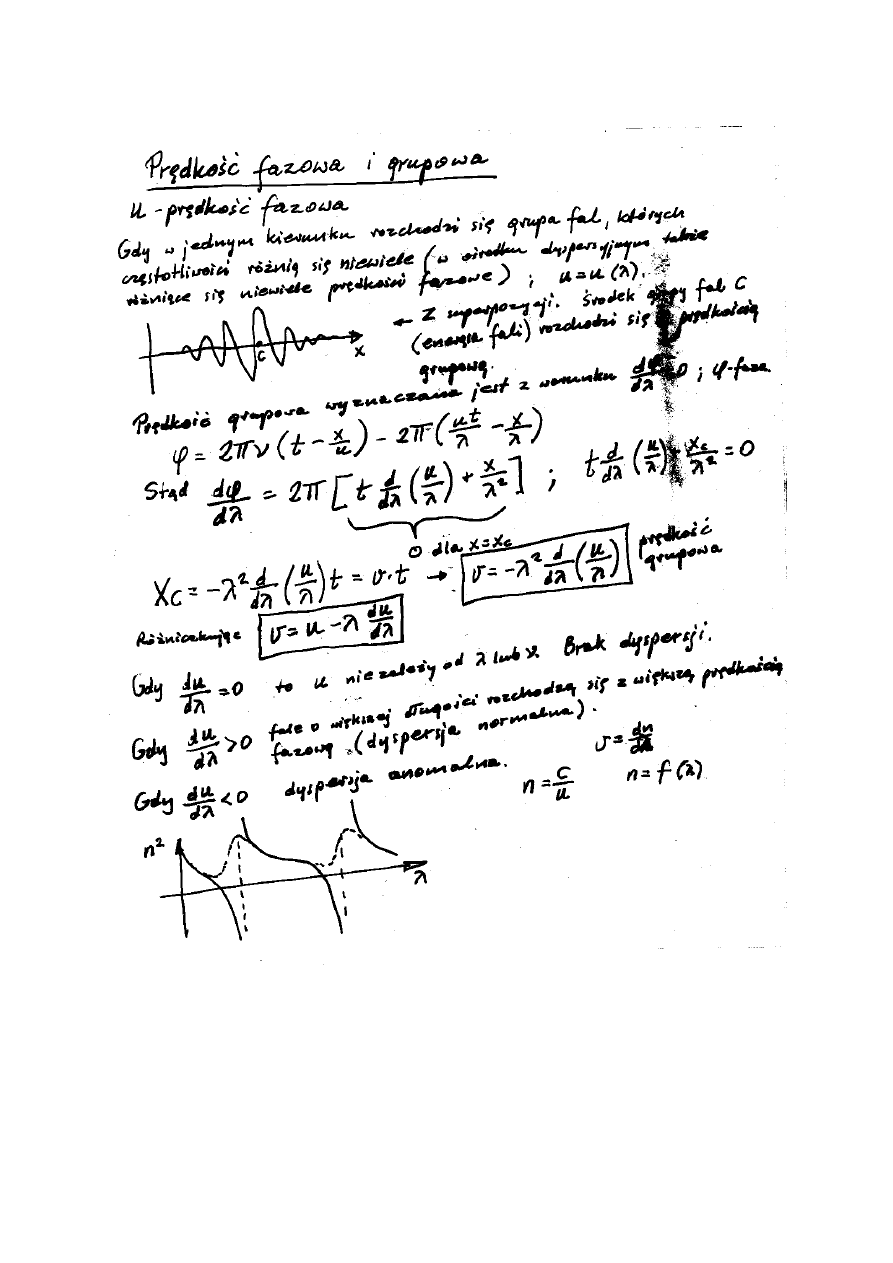 Prędkość fazowa i grupowa
u - prędkość fazowa
Gdy w jednym kierunku rozchodzi się grupa fal, których
częstotliwości różnią się niewiele (w ośrodku dyspersyjnym także
różniące się niewiele prędkości fazowe) ; u = u(λ).
← Z superpozycji. Środek grupy fal C
(energia fali) rozchodzi się z prędkością
grupową.
C x
Prędkość grupowa wyznaczana jest z warunku dφ/dλ = 0 ; φ-faza.
φ = 2πν (t - x/u) - 2π (ut/λ - x/λ)
Stąd dφ/dλ = 2π [t d/dλ (u/λ) + x/λ²] ; t d/dλ (u/λ) + x_c/λ² = 0
0 dla x = x_c
X_C = -λ² d/dλ (u/λ) t = v·t → v = -λ² d/dλ (u/λ) prędkość grupowa
Różniczkując v = u - λ du/dλ
Gdy du/dλ = 0 to u nie zależy od λ lub ν. Brak dyspersji.
Gdy du/dλ > 0 fale o większej długości rozchodzą się z większą prędkością
fazową (dyspersja normalna).
Gdy du/dλ < 0 dyspersja anomalna.
v = dn/dλ
n = c/u n = f(λ)
n²
λ